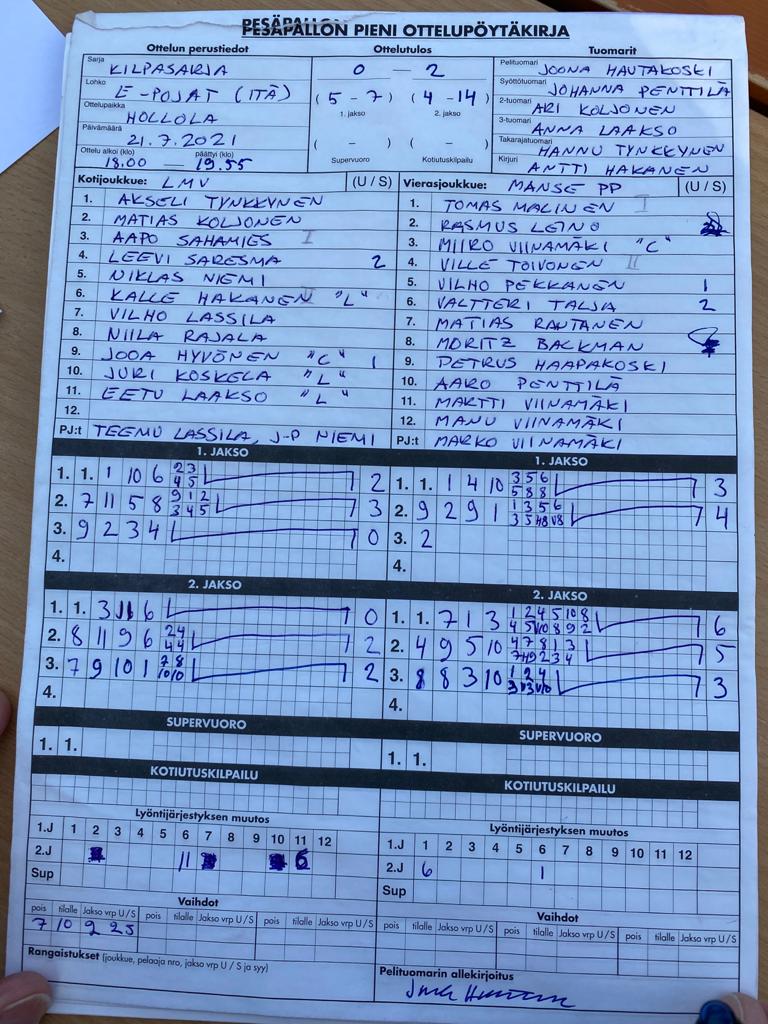 PESÄPALLON PIENI OTTELUPÖYTÄKIRJA
Ottelun perustiedot
Sarja
KILPASARJA
Lohko
E-POJAT (ITÄ)
Ottelupaikka
HOLLOLA
Päivämäärä
21.7.2021
Ottelu alkoi (klo) päättyi (klo)
18.00 19.55
Ottelutulos
0 - 2
(5 - 7) (4 - 14)
1. jakso 2. jakso
( - ) ( - )
Supervuoro Kotiutuskilpailu
Tuomarit
Pelituomari JOONA HAUTAKOSKI
Syöttötuomari JOHANNA PENTTILÄ
2-tuomari ARI KOLJONEN
3-tuomari ANNA LAAKSO
Takarajatuomari HANNU TYNKKYNEN
Kirjuri ANTTI HAKANEN
Kotijoukkue: LMV (U / S)
1. AKSELI TYNKKYNEN
2. MATIAS KOLJONEN
3. AAPO SAHAMIES I
4. LEEVI SARESMA 2
5. NIKLAS NIEMI
6. KALLE HAKANEN II "L"
7. VILHO LASSILA
8. NIILA RAJALA
9. JOOA HYVÖNEN "C" 1
10. JURI KOSKELA "L"
11. EETU LAAKSO "L"
12.
PJ:t TEEMU LASSILA, J-P NIEMI
Vierasjoukkue: MANSE PP (U / S)
1. TOMAS MALINEN I
2. RASMUS LEINO
3. MIIRO VIINAMÄKI "C"
4. VILLE TOIVONEN II
5. VILHO PEKKANEN 1
6. VALTTERI TALJA 2
7. MATIAS RANTANEN
8. MORITZ BACKMAN
9. PETRUS HAAPAKOSKI
10. AARO PENTTILÄ
11. MARTTI VIINAMÄKI
12. MANU VIINAMÄKI
PJ:t MARKO VIINAMÄKI
1. JAKSO
1. 1. 1 10 6 2 3 4 5 2
2. 7 11 5 8 9 1 2 3 4 5 3
3. 9 2 3 4 0
4.
1. JAKSO
1. 1. 1 4 10 3 5 6 5 8 8 3
2. 9 2 9 1 1 3 5 6 4
3. 2
4.
2. JAKSO
1. 1. 3 11 6 0
2. 8 11 9 6 2 4 4 4 2
3. 7 9 10 1 7 8 10 10 2
4.
2. JAKSO
1. 1. 7 1 3 1 2 4 5 10 8 6
2. 4 9 5 10 4 7 8 1 3 5
3. 8 8 3 10 1 2 4 3
4.
SUPERVUORO
1. 1.
SUPERVUORO
1. 1.
KOTIUTUSKILPAILU
KOTIUTUSKILPAILU
Lyöntijärjestyksen muutos
1.J 1 2 3 4 5 6 7 8 9 10 11 12
2.J 11 6
Sup
Lyöntijärjestyksen muutos
1.J 1 2 3 4 5 6 7 8 9 10 11 12
2.J 6 1
Sup
Vaihdot
pois tilalle Jakso vrp U / S pois tilalle Jakso vrp U / S pois tilalle Jakso vrp U / S
7 10 2 2 S
Vaihdot
pois tilalle Jakso vrp U / S pois tilalle Jakso vrp U / S pois tilalle Jakso vrp U / S
Rangaistukset (joukkue, pelaaja nro, jakso vrp U / S ja syy)
Pelituomarin allekirjoitus